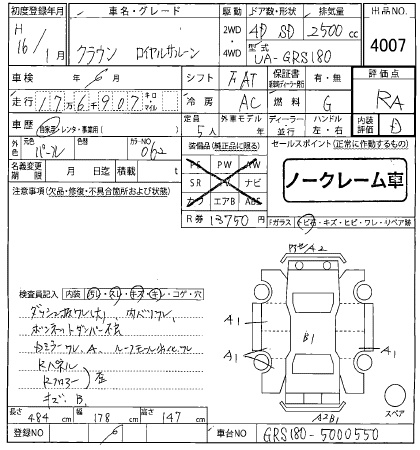 初度登録年月 車名・グレード 駆動 ドア数・形状 排気量 出品NO.
H 16/1月 クラウン ロイヤルサルーン 2WD 4WD 4D SD 2500cc 4007
型式 UA-GRS180
車検 年 月 シフト FAT 保証書 有・無 評価点
走行 176,907 キロ・マイル 冷房 AC 燃料 G RA
車歴 自家用・レンタ・事業用( ) 定員 5人 外車モデル 年 ディーラー 並行 ハンドル 左・右 内装評価 D
外色 元色 パール 色替 カラーNO 062 装備品(純正品に限る) セールスポイント(正常に作動するもの)
名義変更期限 月 日迄 積載 t PS PW AW ノークレーム車
注意事項(欠品・修復・不具合箇所および状態) SR TV ナビ
カワ エアB ABS
R券 13750円 Fガラス トビ石・キズ・ヒビ・ワレ・リペア跡
A2
検査員記入 内装 コゲ・穴
ダッシュ 内バリワレ
ボンネットダンパー不良
A1 B1 A1
ドアミラーワレ、A、ルーフモール
Rパネル
Rフロアー 歪
キズ B
A1
A2B1 スペア
長さ 484cm 幅 178cm 高さ 147cm
登録NO 車台NO GRS180-5000550